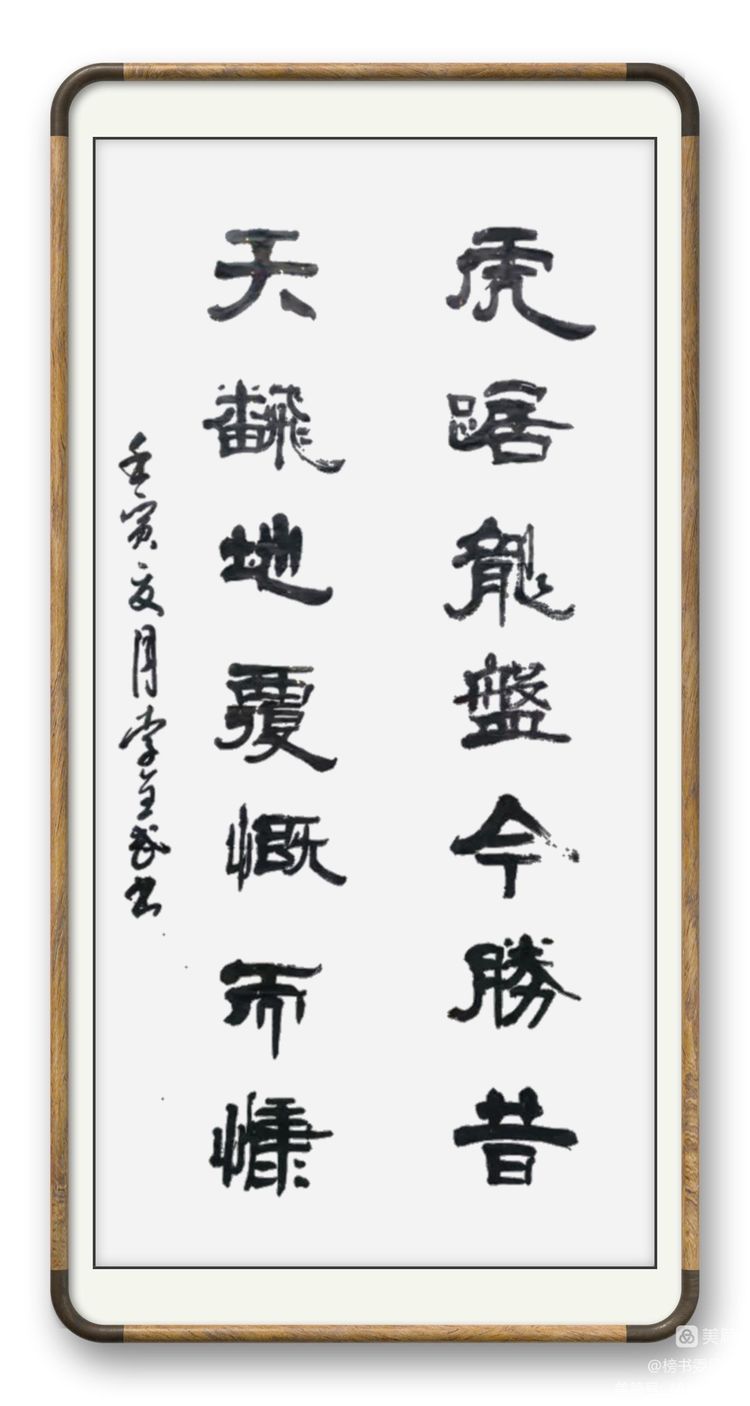 虎踞龍盤今勝昔
天翻地覆慨而慷
壬寅夏月李全武書
美篇
@榜书委